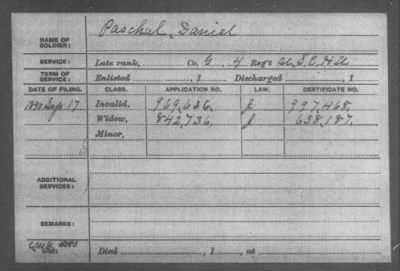 NAME OF SOLDIER: Paschal, Daniel
SERVICE: Late rank, Co. G, 4 Reg't U.S.C.H.A.
TERM OF SERVICE: Enlisted , 1 Discharged , 1
DATE OF FILING. CLASS. APPLICATION NO. LAW. CERTIFICATE NO.
1890 Sep. 17 Invalid, 969,636 997,468.
Widow, 842,736, 638,187.
Minor,
ADDITIONAL SERVICES:
REMARKS:
Died , 1 , at